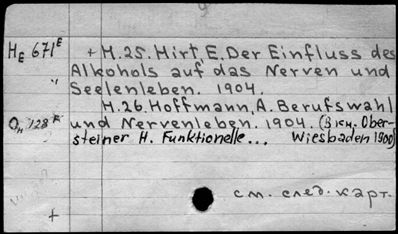 Н_Е 671^Е + Н.25. Hirt, E. Der Einfluss des
" Alkohols auf das Nerven und
Seelenleben. 1904.
Н.26. Hoffmann, A. Berufswahl
und Nervenleben. 1904. (В кн. Ober-
steiner H. Funktionelle... Wiesbaden 1900)
см. след. карт.
+